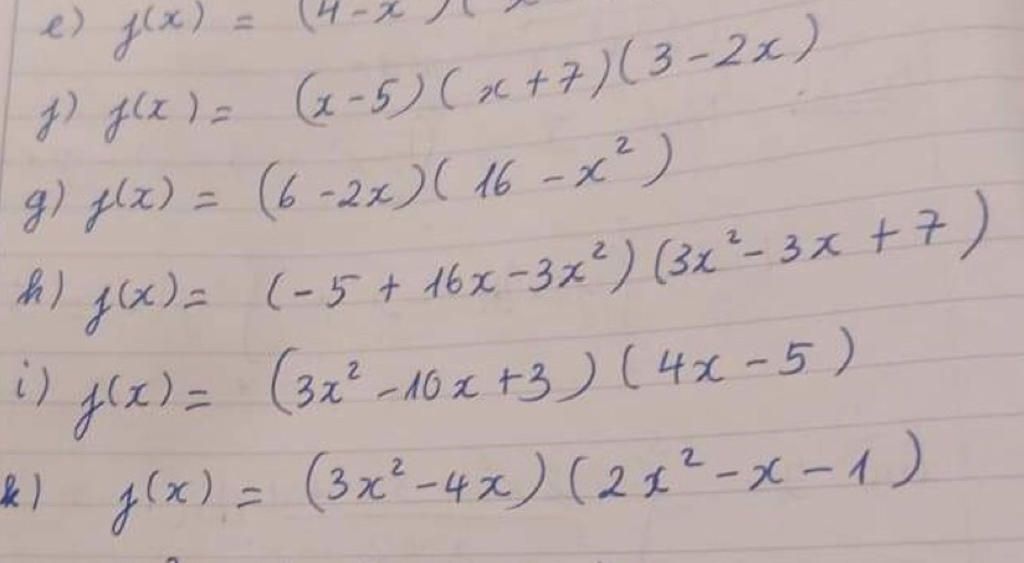 e) f(x) = (4-x)(
f) f(x) = (x-5)(x+7)(3-2x)
g) f(x) = (6-2x)(16-x²)
h) f(x) = (-5+16x-3x²)(3x²-3x+7)
i) f(x) = (3x²-10x+3)(4x-5)
k) f(x) = (3x²-4x)(2x²-x-1)